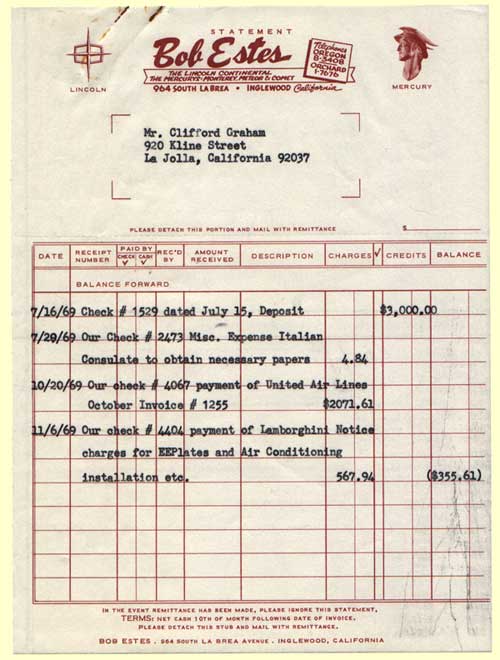 STATEMENT
Bob Estes
THE LINCOLN CONTINENTAL
THE MERCURYS-MONTEREY, METEOR & COMET
964 SOUTH LA BREA • INGLEWOOD California
Telephones
OREGON
8-3408
ORCHARD
1-7676
LINCOLN
MERCURY
Mr. Clifford Graham
920 Kline Street
La Jolla, California 92037
PLEASE DETACH THIS PORTION AND MAIL WITH REMITTANCE $
DATE RECEIPT NUMBER PAID BY CHECK √ CASH √ REC'D BY AMOUNT RECEIVED DESCRIPTION CHARGES √ CREDITS BALANCE
BALANCE FORWARD
7/16/69 Check # 1529 dated July 15, Deposit $3,000.00
7/29/69 Our Check # 2473 Misc. Expense Italian
Consulate to obtain necessary papers 4.84
10/20/69 Our check # 4067 payment of United Air Lines
October Invoice # 1255 $2071.61
11/6/69 Our check # 4404 payment of Lamborghini Notice
charges for EEPlates and Air Conditioning
installation etc. 567.94 ($355.61)
IN THE EVENT REMITTANCE HAS BEEN MADE, PLEASE IGNORE THIS STATEMENT.
TERMS: NET CASH 10TH OF MONTH FOLLOWING DATE OF INVOICE.
PLEASE DETACH THIS STUB AND MAIL WITH REMITTANCE.
BOB ESTES . 964 SOUTH LA BREA AVENUE . INGLEWOOD, CALIFORNIA